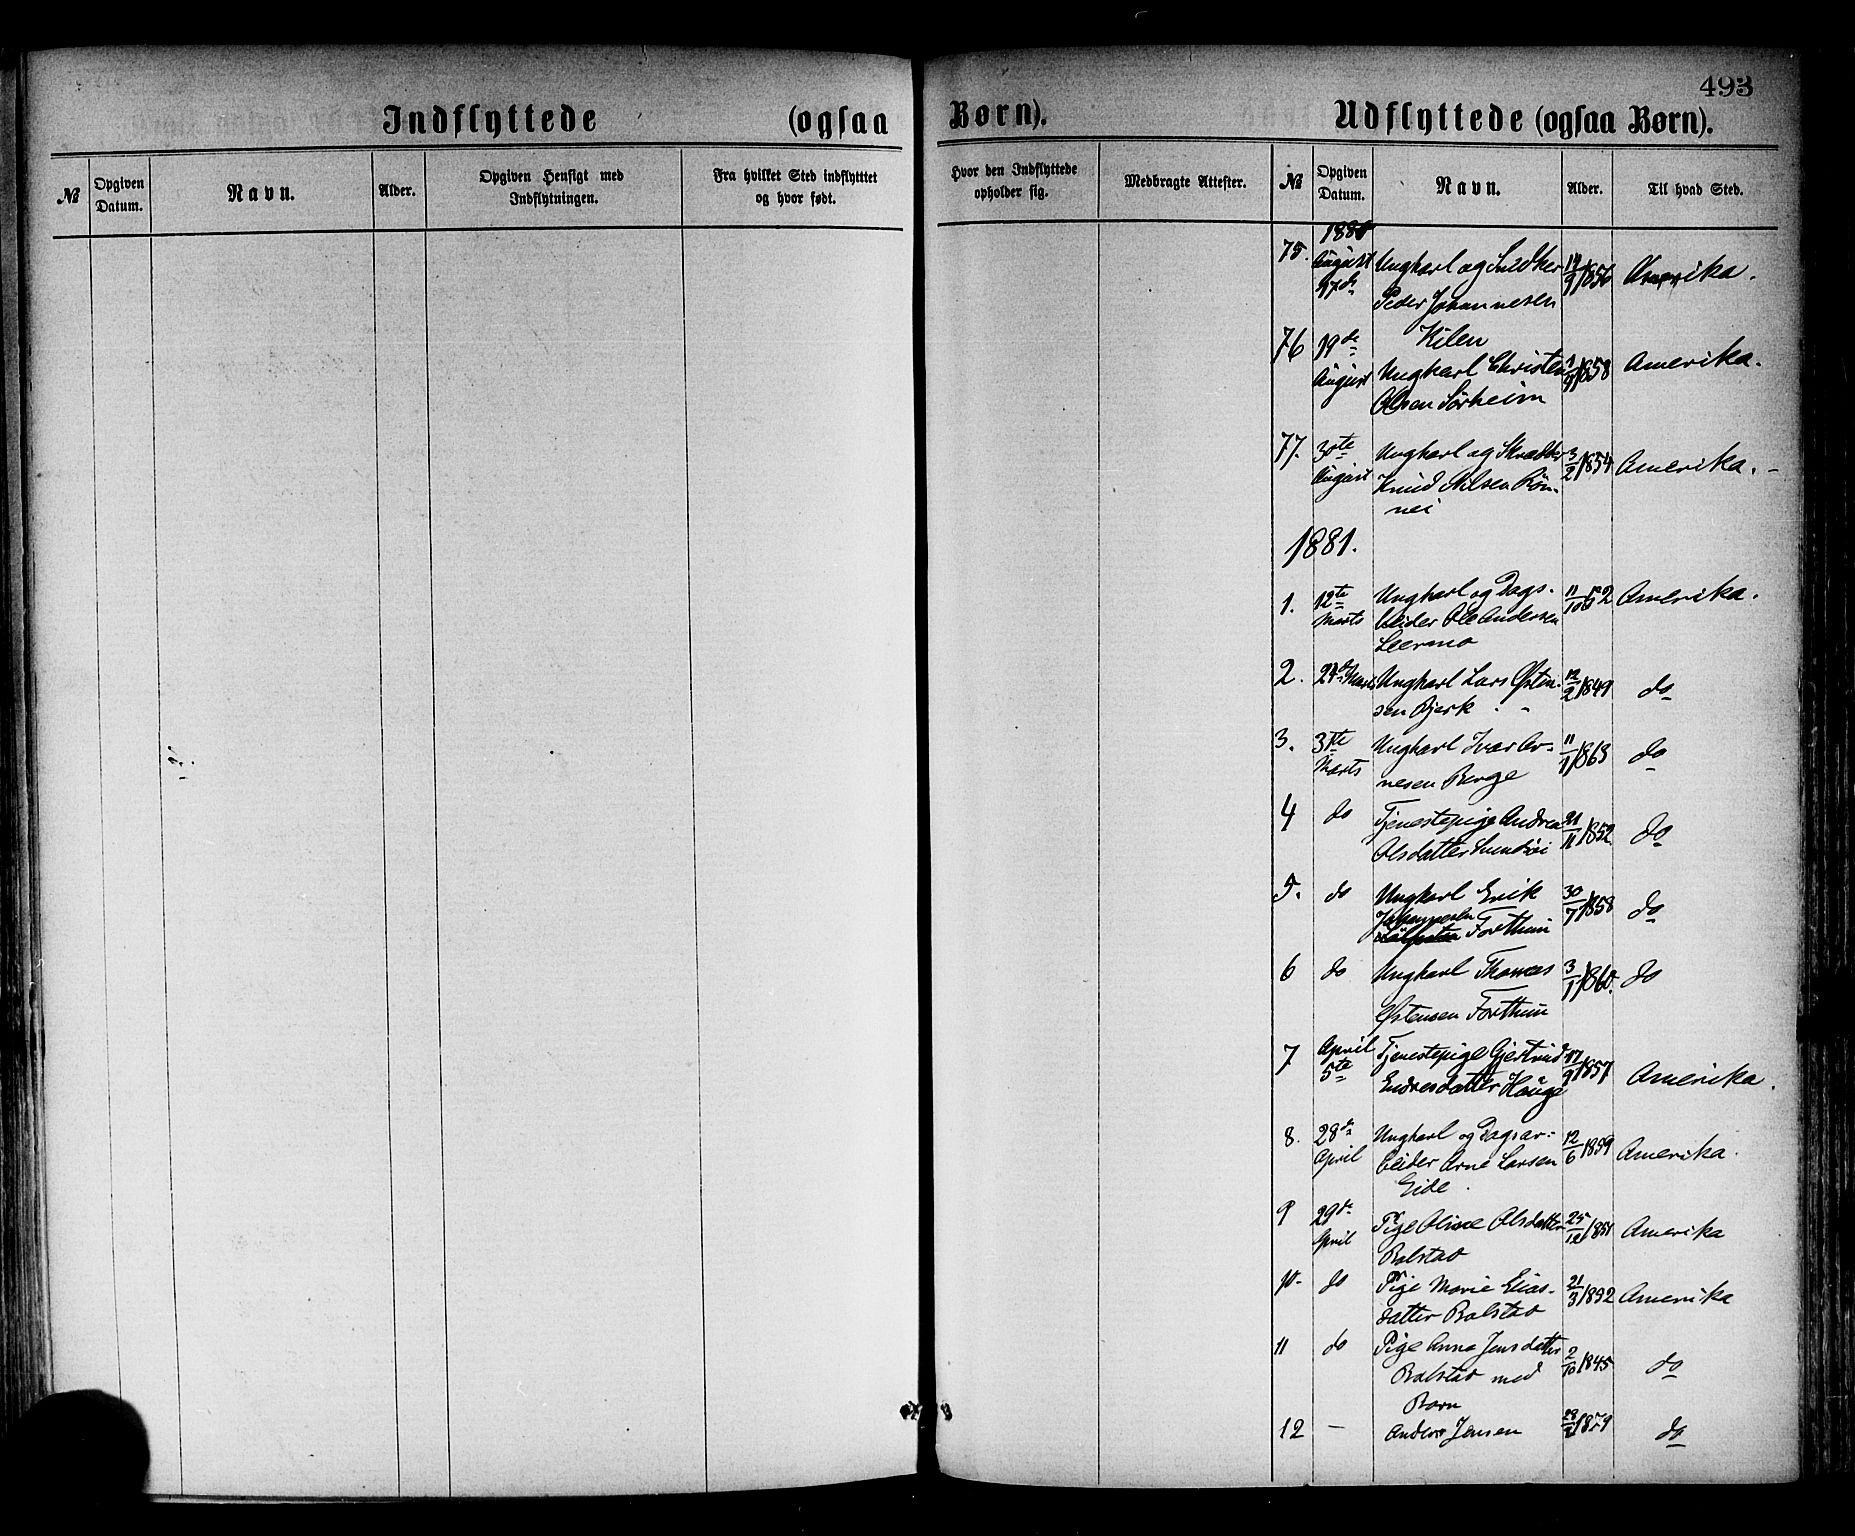 493
Indflyttede (ogsaa Børn).
Udflyttede (ogsaa Børn).
№ Opgiven Datum. Navn. Alder. Opgiven Hensigt med Indflytningen. Fra hvilket Sted indflytttet og hvor født. Hvor den Indflyttede opholder sig. Medbragte Attester.
№ Opgiven Datum. Navn. Alder. Til hvad Sted.
1880
75. August Ungkarl og Snedker 1856 Amerika.
Peder Johannesen
Kilen
76 19de August Ungkarl Christen 1858 Amerika.
Olsen Sørheim
77. 30te August Ungkarl og Skrædder 3/2 1854 Amerika.
Knud Nilsen Røn-
nei
1881.
1. 12te Marts Ungkarl og Dags- 11/10 52 Amerika.
beider Ole Andersen
Leermo
2. 24de Marts Ungkarl Lars Østen- 12/2 1849 do
sen Bjerk
3. 31te Marts Ungkarl Ivar Ar- 11/1 1863 do
nesen Berge
4 do Tjenestepige Andrea 21/11 1852 do
Olsdatter
5. do Ungkarl Erik 30/7 1858 do
Johannesen Forthun
6 do Ungkarl Thomas 3/1 1860. do
Østensen Forthun
7 April 5te Tjenestepige Gjertrud 17/9 1857 Amerika.
Endresdatter Hauge
8. 28de April Ungkarl og Dagsar- 12/6 1859 Amerika.
beider Arne Larsen
Eide.
9 29de April Pige Oline Olsdatter 25/12 1851 Amerika
Bolstad
10. do Pige Marie Elias- 21/3 1852 Amerika
datter Bolstad
11 do Pige Anna Jensdatter 2/10 1845 do
Bolstad med
Barn
12 — Anders Jensen 1879 do